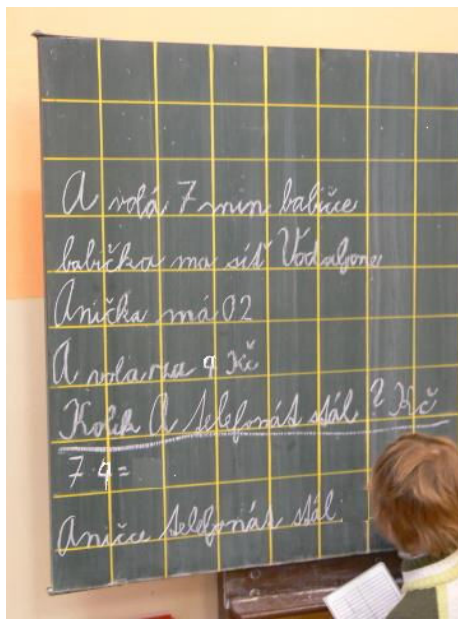 A volá 7 min babičce
babička ma síť Vodafone
Anička má O2
A vola za 9 Kč
Kolik A telefonát stál ? Kč
7·9=
Aničce telefonát stál